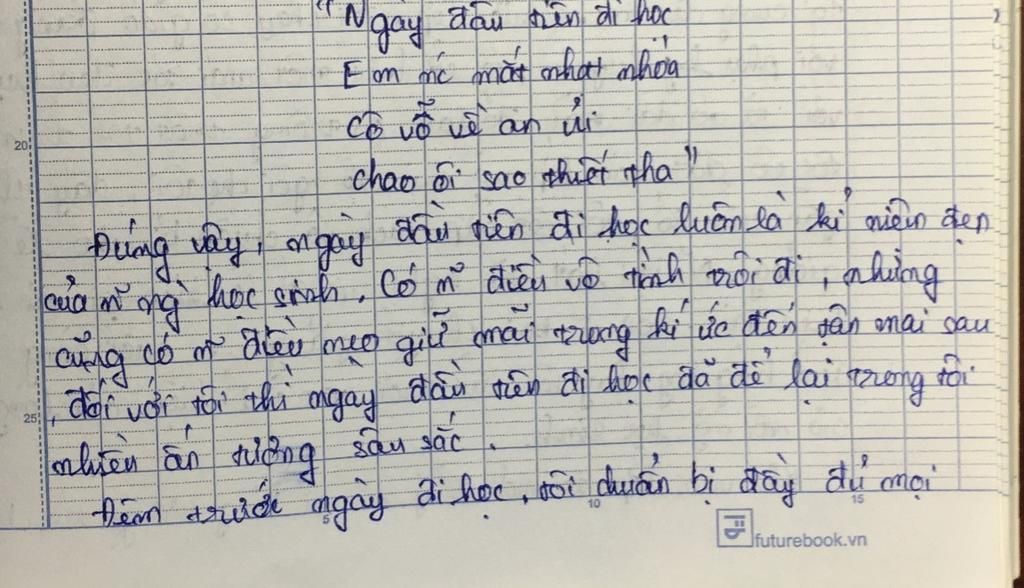 "Ngày đầu tiên đi học
Em mć mắt nhạt nhòa
Cô vỗ về an ủi
chao ôi sao thiết tha"
Đúng vậy, ngày đầu tiên đi học luôn là kỉ niệm đẹp
của m̃ ng̀ học sinh. Có m̃ điều vô tình trôi đi, nhưng
cũng có m̃ điều mẹo giữ mãi trong kí ức đến tận mai sau
, đối với tôi thì ngày đầu tiên đi học đã để lại trong tôi
nhiều ấn tượng sâu sắc.
Đêm trước ngày đi học, tôi chuẩn bị đầy đủ mọi
20
25
5
10
15
futurebook.vn